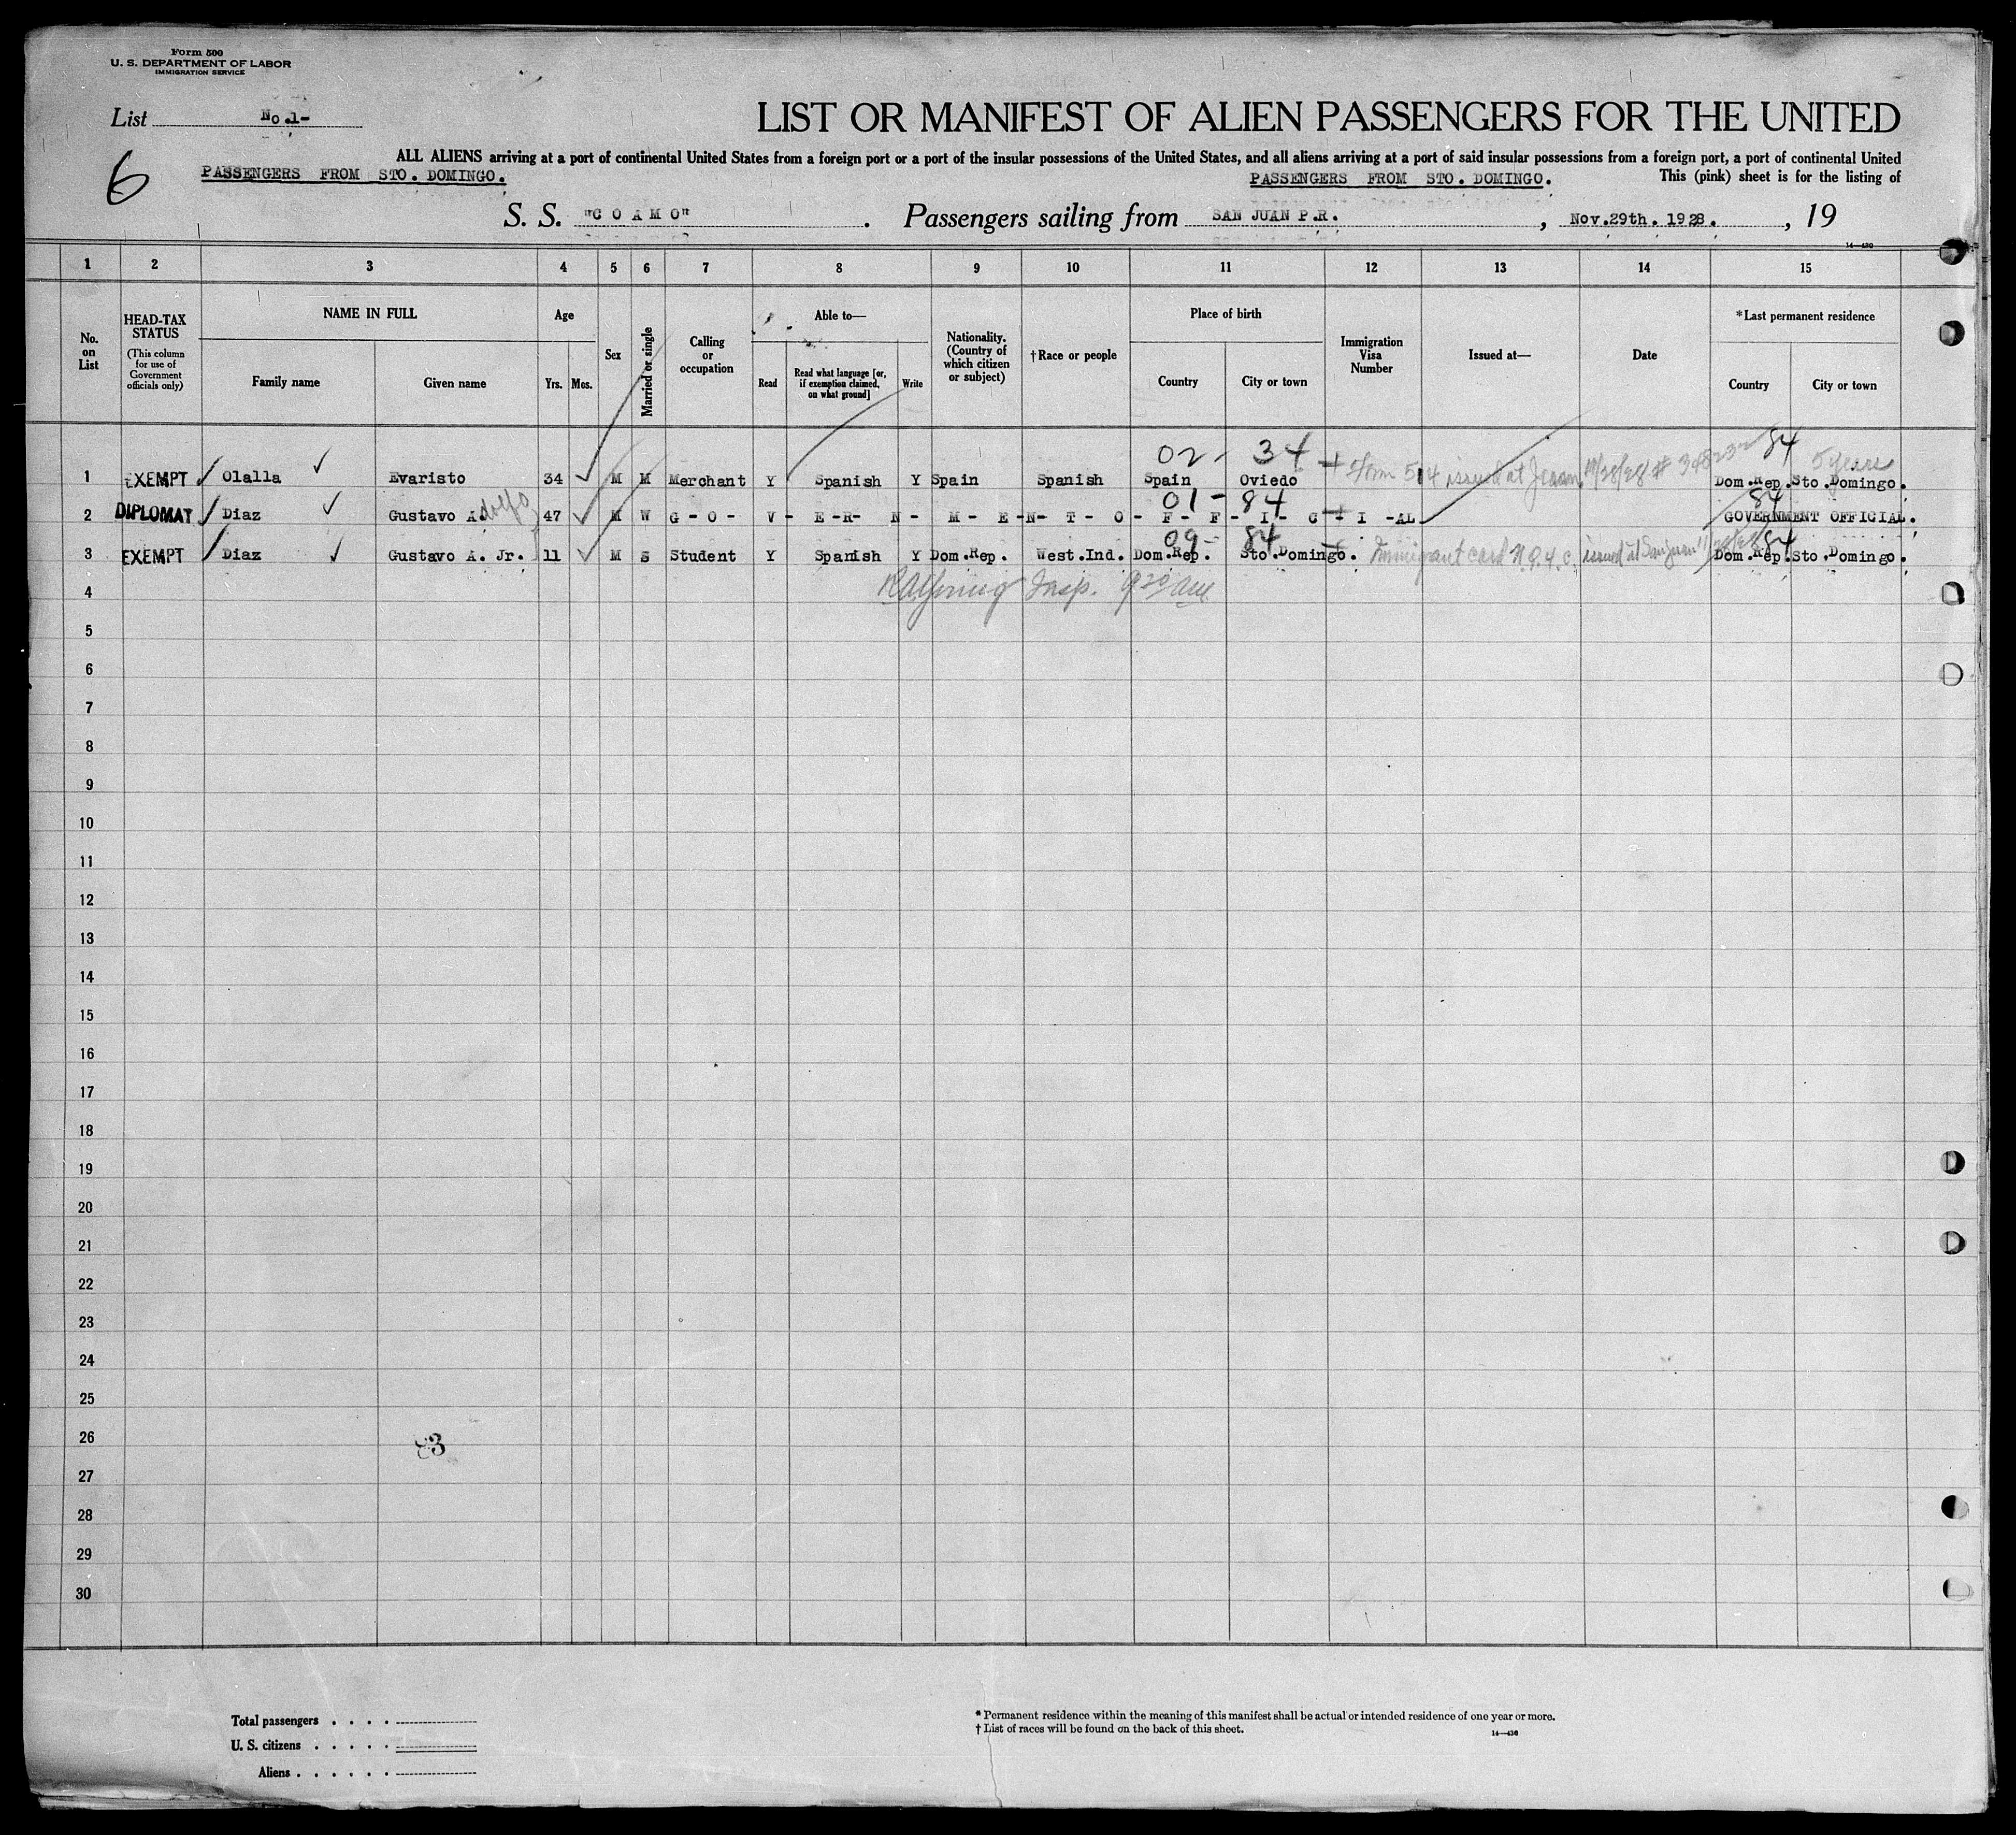 Form 500
U. S. DEPARTMENT OF LABOR
IMMIGRATION SERVICE
List No.1-
LIST OR MANIFEST OF ALIEN PASSENGERS FOR THE UNITED
6
ALL ALIENS arriving at a port of continental United States from a foreign port or a port of the insular possessions of the United States, and all aliens arriving at a port of said insular possessions from a foreign port, a port of continental United
PASSENGERS FROM STO. DOMINGO. PASSENGERS FROM STO. DOMINGO. This (pink) sheet is for the listing of
S. S. "C O A M O". Passengers sailing from SAN JUAN P.R. , Nov.29th. 1928. , 19
14—430
1 2 3 4 5 6 7 8 9 10 11 12 13 14 15
No. on List
HEAD-TAX STATUS
(This column for use of Government officials only)
NAME IN FULL
Family name Given name
Age
Yrs. Mos.
Sex
Married or single
Calling or occupation
Able to—
Read
Read what language [or, if exemption claimed, on what ground]
Write
Nationality. (Country of which citizen or subject)
†Race or people
Place of birth
Country City or town
Immigration Visa Number
Issued at—
Date
*Last permanent residence
Country City or town
02- 34 84
1 EXEMPT Olalla Evaristo 34 M M Merchant Y Spanish Y Spain Spanish Spain Oviedo Form 514 issued at 11/28/28 # Dom.Rep. Sto.Domingo. 5 years
01- 84 84
2 DIPLOMAT Diaz Gustavo A.dolfo 47 M W G - O - V - E - R - N - M - E - N - T - O - F - F - I - C - I - AL GOVERNMENT OFFICIAL.
09- 84 84
3 EXEMPT Diaz Gustavo A. Jr. 11 M S Student Y Spanish Y Dom.Rep. West.Ind. Dom.Rep. Sto.Domingo. Immigrant card N.Q.4.c. issued at San Juan 11/28/28 Dom.Rep. Sto.Domingo.
Insp. 9 20 am
4
5
6
7
8
9
10
11
12
13
14
15
16
17
18
19
20
21
22
23
24
25
26
27
28
29
30
Total passengers . . . .
U. S. citizens . . . . .
Aliens . . . . . .
* Permanent residence within the meaning of this manifest shall be actual or intended residence of one year or more.
† List of races will be found on the back of this sheet.
14—430